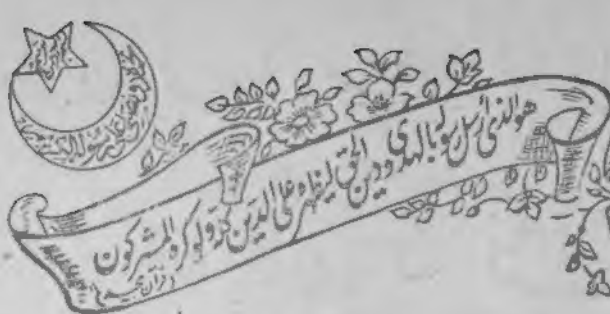 هو الذي ارسل رسوله بالهدى ودين الحق ليظهره على الدين كله ولو كره المشركون
(قرآن مجید)